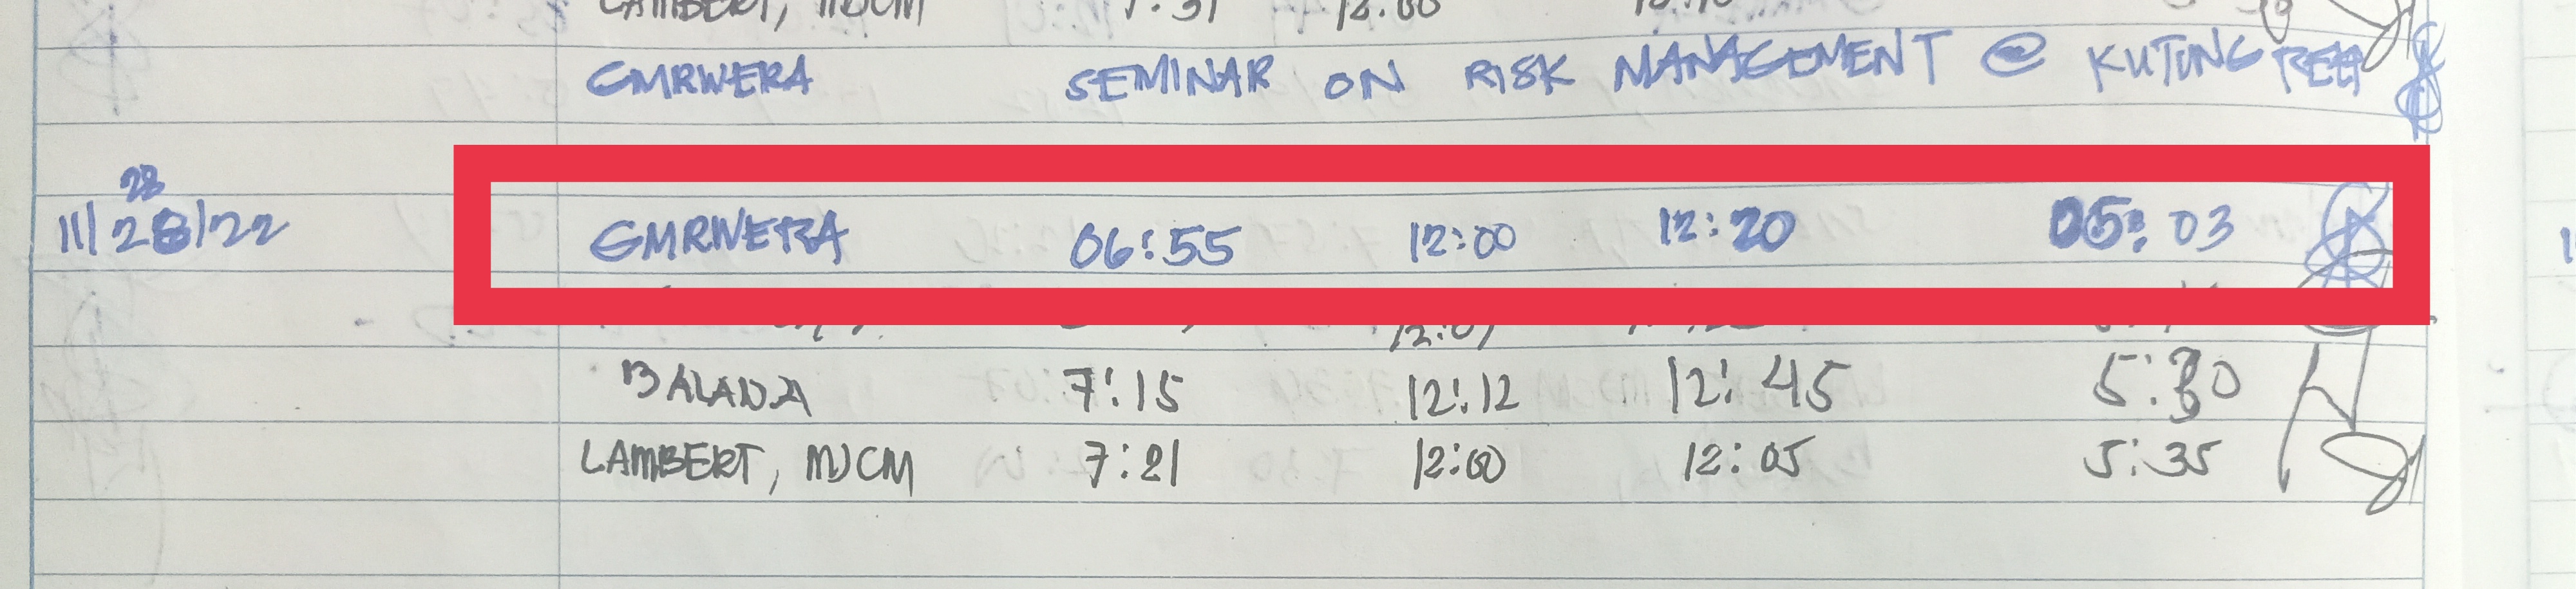 LAMBERT, MJCM 7:31 12:00
GMRWERA SEMINAR ON RISK MANAGEMENT @ KUTUNG REEF
28
11/28/22 GMRWERA 06:55 12:00 12:20 05:03
12:07
BALADA 7:15 12:12 12:45 5:30
LAMBERT, MJCM 7:21 12:00 12:05 5:35